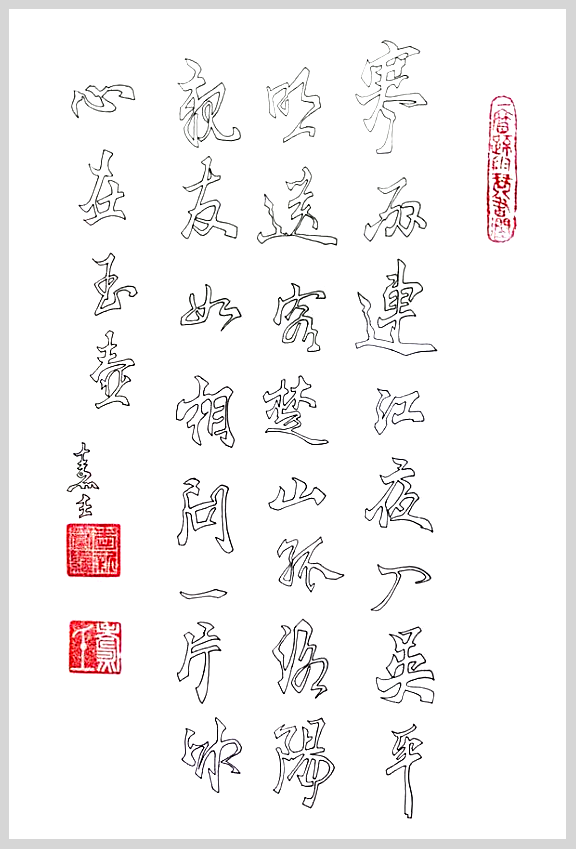 一簾疏雨琴書潤
寒雨連江夜入吳平
明送客楚山孤洛陽
親友如相問一片冰
心在玉壺